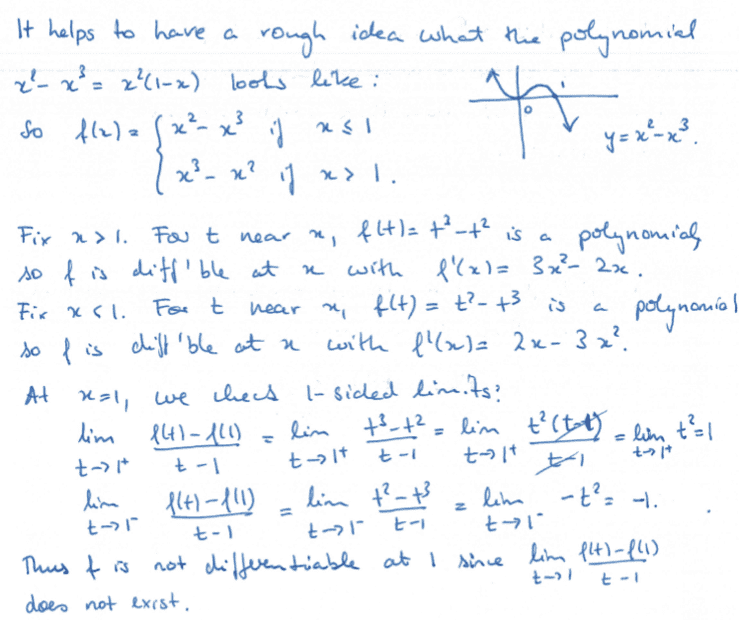 It helps to have a rough idea what the polynomial
x² - x³ = x²(1-x) looks like:
0 1
So f(x) = { x² - x³ if x ≤ 1
y = x² - x³.
x³ - x² if x > 1.
Fix x > 1. For t near x, f(t) = t³ - t² is a polynomial,
so f is diff'ble at x with f'(x) = 3x² - 2x.
Fix x < 1. For t near x, f(t) = t² - t³ is a polynomial
so f is diff'ble at x with f'(x) = 2x - 3x².
At x=1, we check 1-sided limits:
lim t→1⁺ (f(t) - f(1))/(t - 1) = lim t→1⁺ (t³ - t²)/(t - 1) = lim t→1⁺ t²(t-1)/(t-1) = lim t→1⁺ t² = 1
lim t→1⁻ (f(t) - f(1))/(t - 1) = lim t→1⁻ (t² - t³)/(t - 1) = lim t→1⁻ -t² = -1.
Thus f is not differentiable at 1 since lim t→1 (f(t) - f(1))/(t - 1)
does not exist.